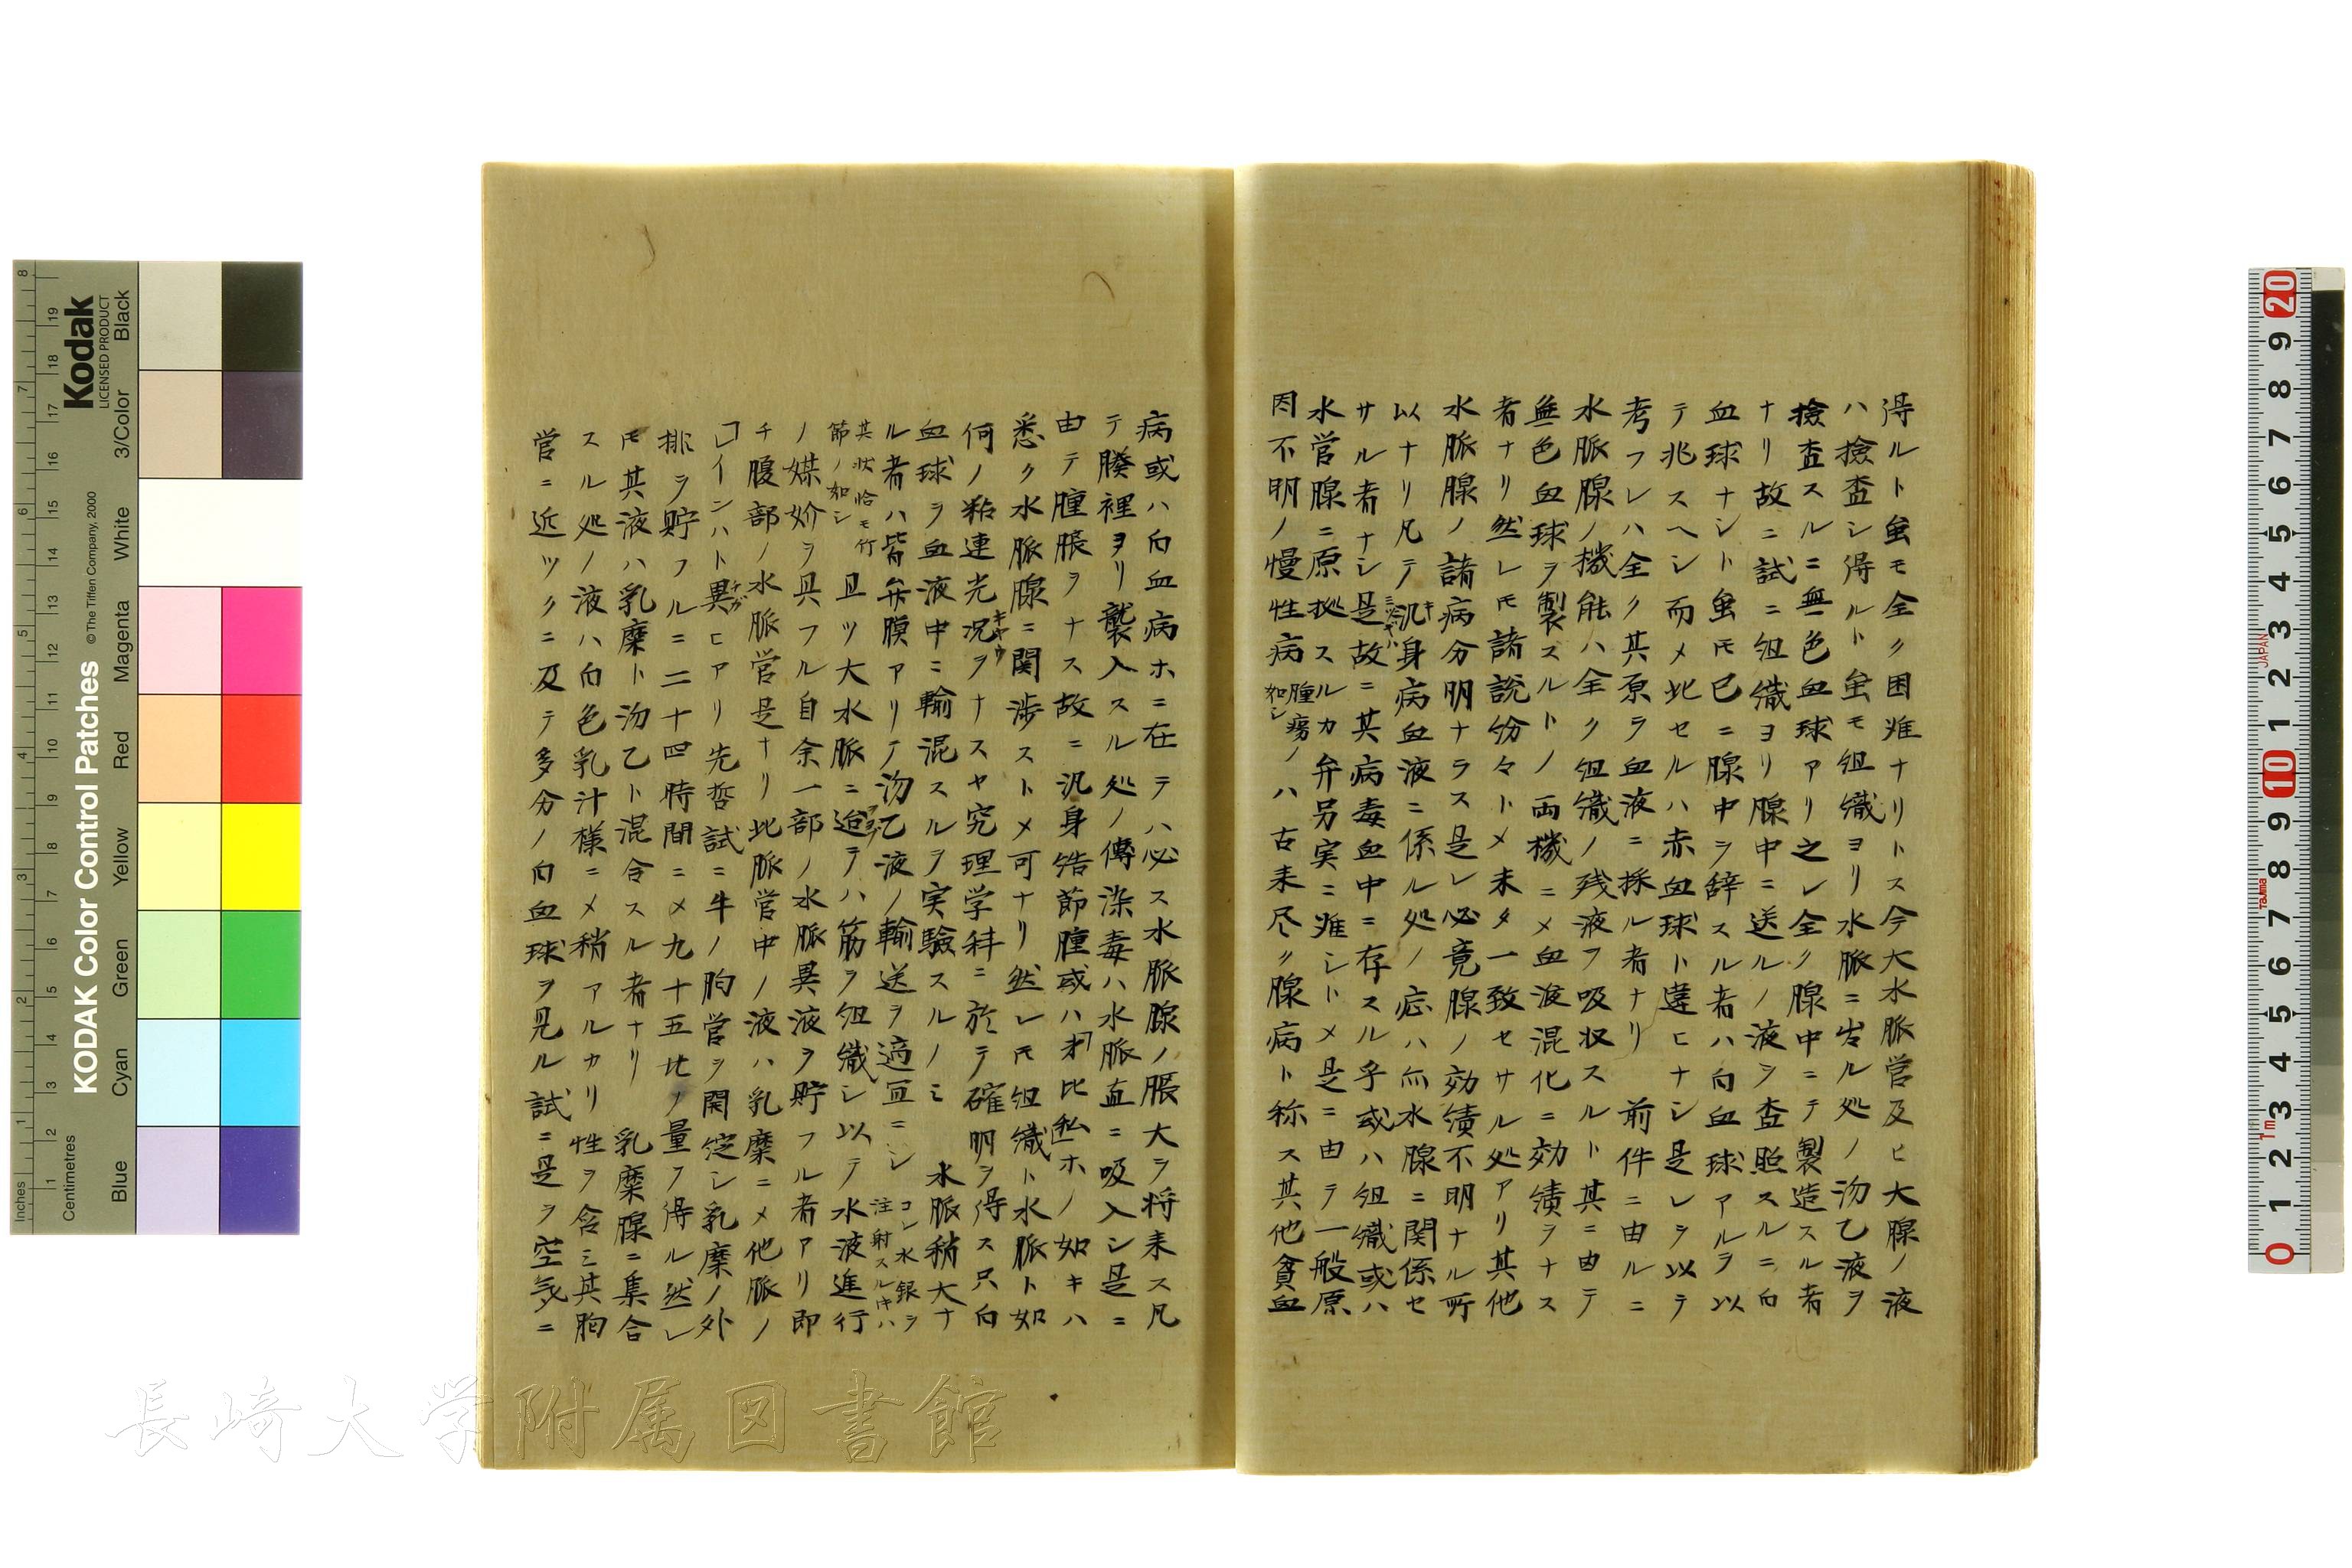 得ルト虽モ全ク困难ナリトス今大水脈管及ヒ大腺ノ液
ハ撿査シ得ルト虽モ组織ヨリ水脈ニ出ル処ノ沕乙液ヲ
撿査スルニ無色血球アリ之レ全ク腺中ニテ製造スル者
ナリ故ニ試ニ组織ヨリ腺中ニ送ルノ液ヲ査照スルニ白
血球ナシト虽モ已ニ腺中ヲ辞スル者ハ白血球アルヲ以
テ兆スヘシ而メ此セルハ赤血球ト違ヒナシ是レヲ以テ
考フレハ全ク其原ラ血液ニ採ル者ナリ 前件ニ由ルニ
水脈腺ノ機能ハ全ク组織ノ残液ヲ吸収スルト其ニ由テ
無色血球ヲ製スルトノ両機ニメ血液混化ニ効績ヲナス
者ナリ然レモ諸説紛々トメ未タ一致セサル処アリ其他
水脈腺ノ諸病分明ナラス是レ必竟腺ノ効績不明ナル所
以ナリ凡テ汎身病血液ニ係ル処ノ症ハ而水腺ニ関係セ
サル者ナシ是故ニ其病毒血中ニ存スル乎或ハ组織或ハ
水管腺ニ原拠スルカ弁另実ニ难シトメ是ニ由テ一般原
因不明ノ慢性病 腫瘍ノ如シ ハ古来尽ク腺病ト称ス其他貧血
病或ハ白血病ホニ在テハ必ス水脈腺ノ脹大ラ将来ス凡
テ腠裡ヨリ襲入スル処ノ傳染毒ハ水脈直ニ吸入シ是ニ
由テ腫脹ヲナス故ニ汎身结節腫或ハ「才比私」ホノ如キハ
悉ク水脈腺ニ関渉ストメ可ナリ然レモ组織ト水脈ト如
何ノ粘連光况ヲナスヤ究理学科ニ於テ確明ヲ得ス只白
血球ラ血液中ニ輸混スルヲ実驗スルノミ 水脈稍大ナ
ル者ハ皆弁膜アリテ沕乙液ノ輸送ヲ適宜ニシ コレ水銀ヲ注射スルキハ
其状恰モ竹節ノ如シ 且ツ大水脈ニ迨テハ筋ヲ组織シ以テ水液進行
ノ媒妎ヲ具フル自余一部ノ水脈異液ヲ貯フル者アリ即
チ腹部ノ水脈管是ナリ此脈管中ノ液ハ乳糜ニメ他脈ノ
「レインハト異ヒアリ先哲試ニ牛ノ胸管ヲ開綻シ乳糜ノ外
排ヲ貯フルニ二十四時間ニメ九十五比ノ量フ得ル然レ
モ其液ハ乳糜ト沕乙ト混合スル者ナリ 乳糜腺ニ集合
スル処ノ液ハ白色乳汁様ニメ稍アルカリ性ヲ含ミ其胸
管ニ近ツクニ及テ多分ノ白血球ヲ見ル試ニ是ヲ空気ニ
長崎大学附属図書館